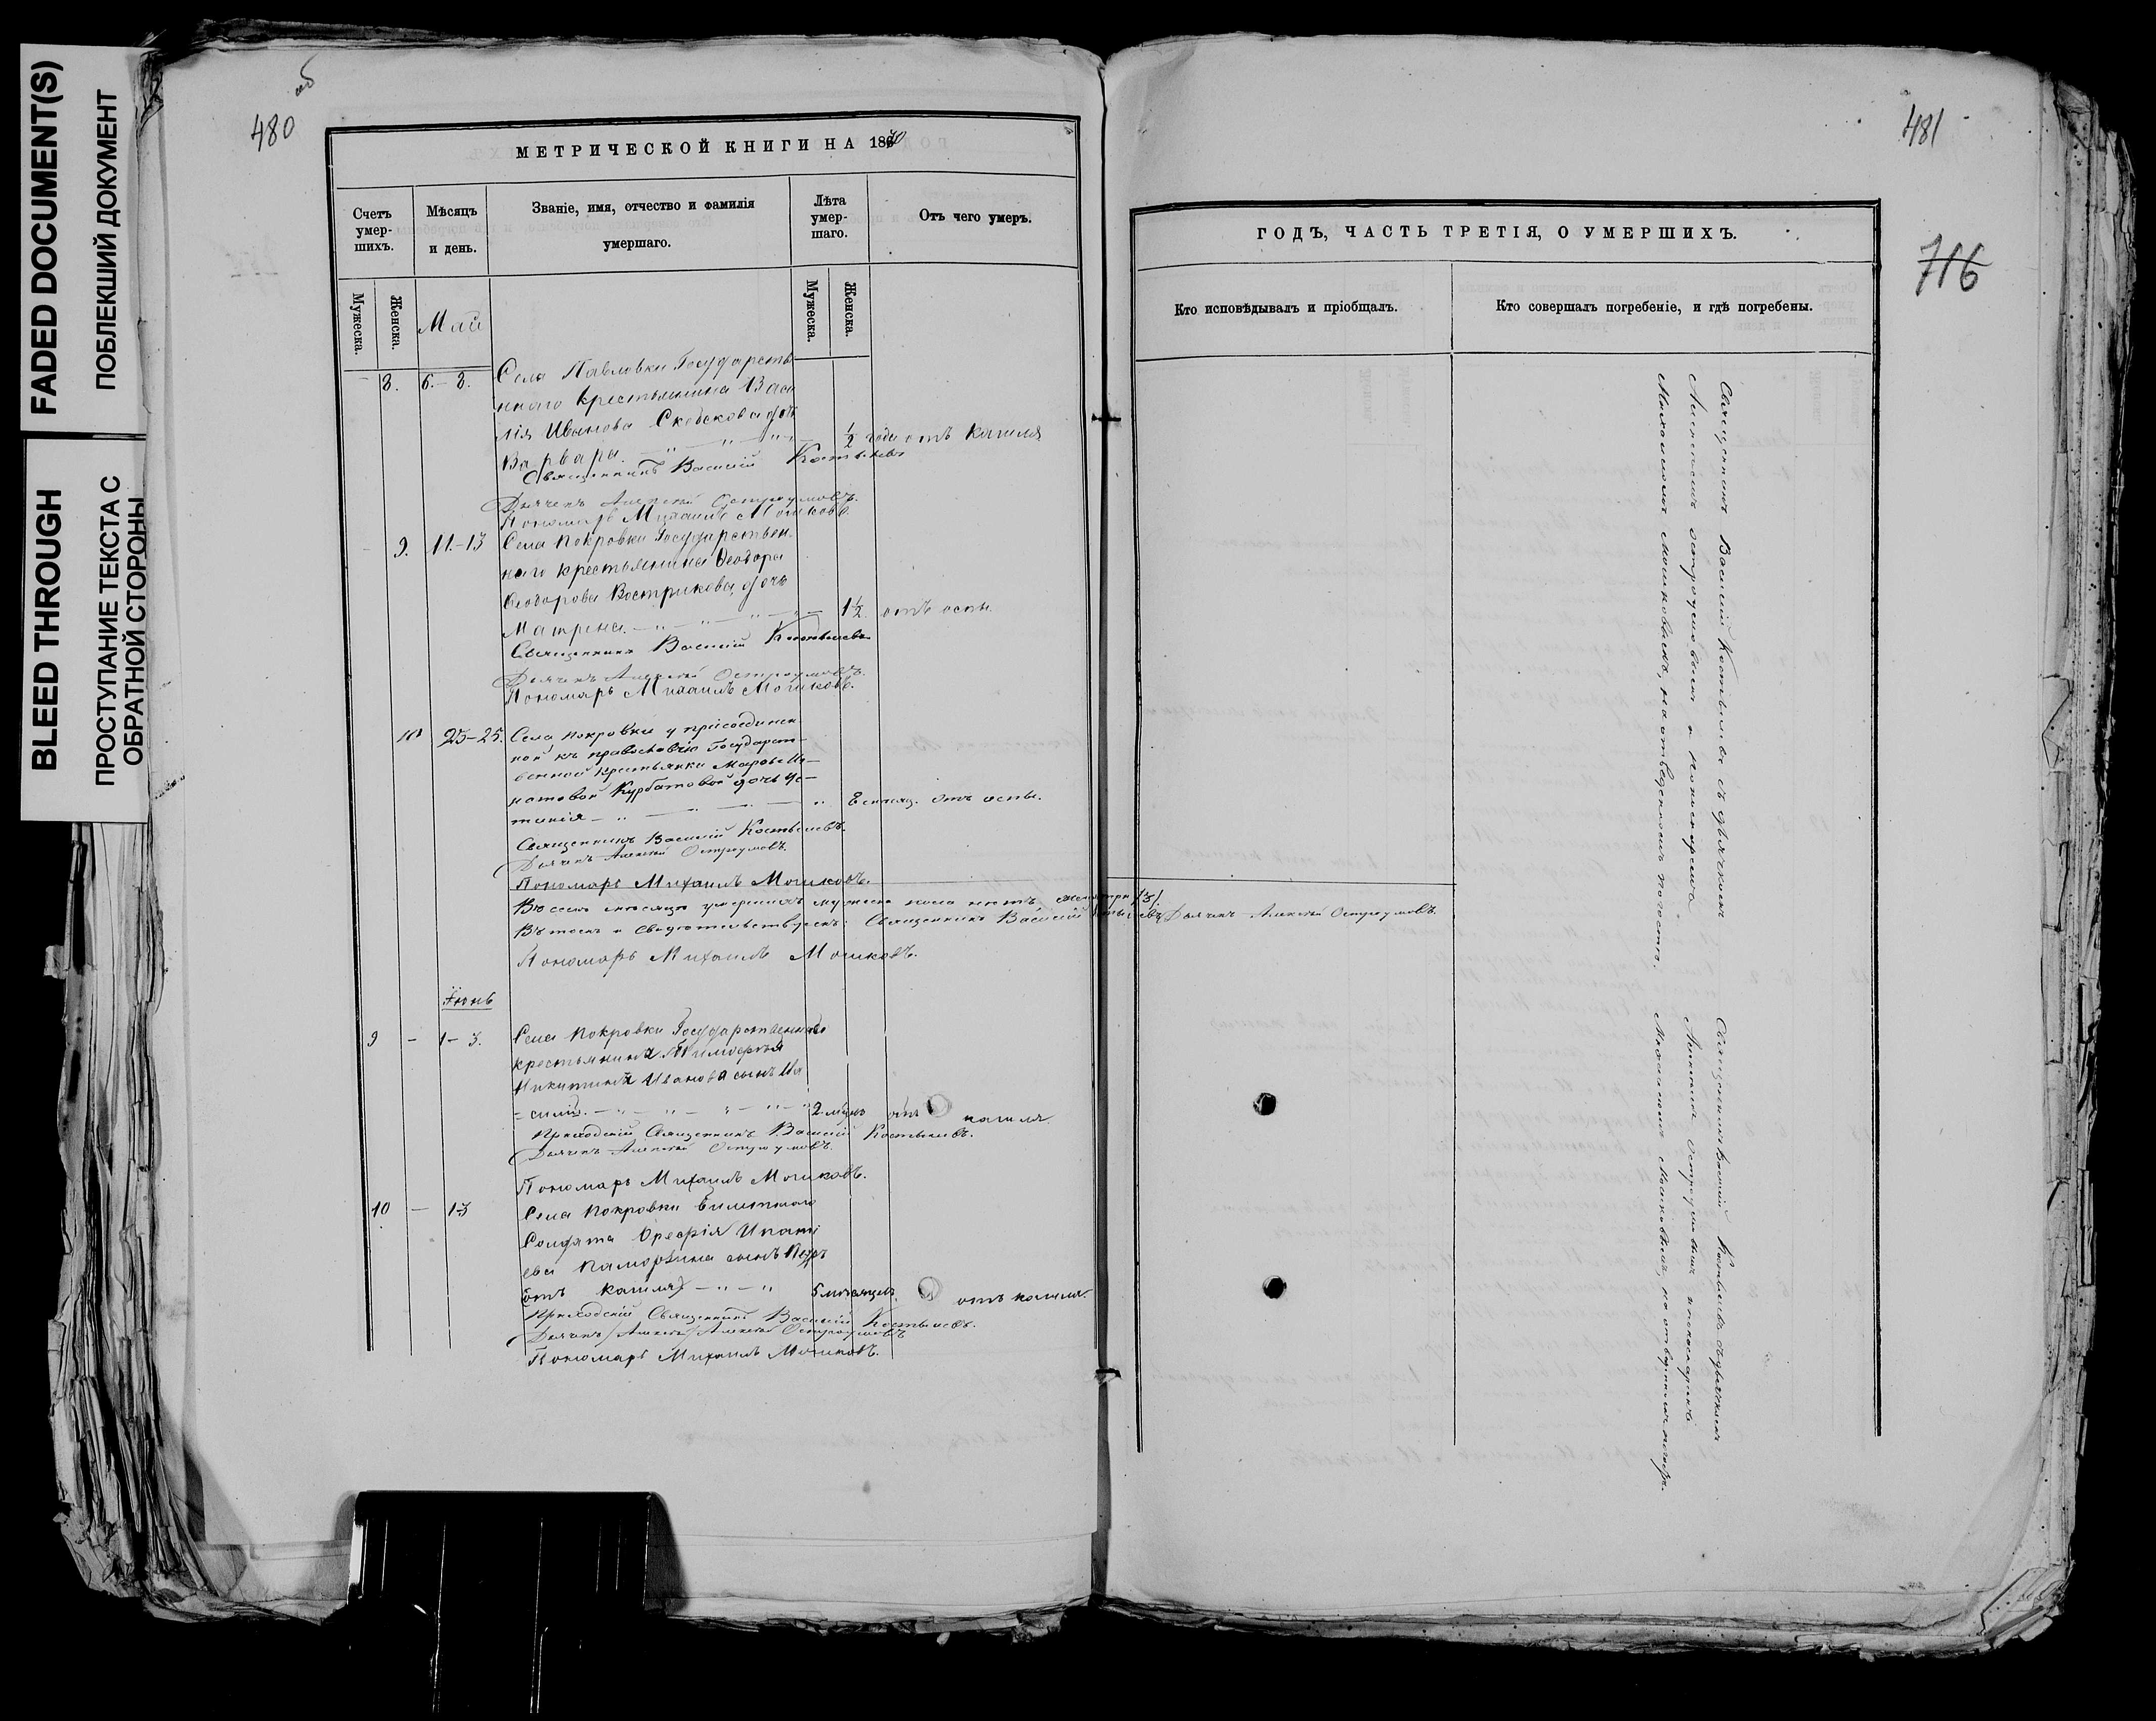 FADED DOCUMENT(S)
ПОБЛЕКШИЙ ДОКУМЕНТ
BLEED THROUGH
ПРОСТУПАНИЕ ТЕКСТА С
ОБРАТНОЙ СТОРОНЫ
480 об
МЕТРИЧЕСКОЙ КНИГИ НА 1870
Счетъ умер-шихъ.
Мѣсяцъ и день.
Званіе, имя, отчество и фамилія умершаго.
Лѣта умер-шаго.
Отъ чего умеръ.
Мужеска.
Женска.
Май
Мужеска.
Женска.
8. 6.-8. Села Павловки Государств
ннаго крестьянина Васи
лія Иванова Скобскова дочь
Варвара ½ года отъ кашля
Священникъ Василій Костылевъ
Дьячекъ Алексѣй Остроумовъ.
Пономарь Михаилъ Мошковъ.
9. 11.-13 Села Покровки Государствен-
наго крестьянина Ѳеодора
Ѳеодорова Вострикова дочь
Матрена. 1½ отъ оспы.
Священникъ Василій Костылевъ
Дьячекъ Алексѣй Остроумовъ.
Пономарь Михаилъ Мошковъ.
10 23-25. Села Покровки у присоединен
ной къ православію Государст-
венной крестьянки Марѳы Иг-
натовой Курбатовой дочь Ус-
тинія 8 мѣсяц. отъ оспы.
Священникъ Василій Костылевъ.
Дьячекъ Алексѣй Остроумовъ.
Пономарь Михаилъ Мошковъ.
Въ семъ мѣсяцѣ умершихъ мужеска пола нѣтъ женска три /3/.
Въ томъ и свидѣтельствуемъ: Священникъ Василій Костылевъ Дьячекъ Алексѣй Остроумовъ.
Пономарь Михаилъ Мошковъ.
Іюнь
9 - 1-3. Села Покровки Государственнаго
крестьянина Тимоѳея
Никитина Иванова сынъ Ва
=силій. 2 мѣ отъ кашля
Приходскій Священникъ Василій Костылевъ.
Дьячекъ Алексѣй Остроумовъ.
Пономарь Михаилъ Мошковъ.
10 - 1-3 Села Покровки билетнаго
Солдата Ореѳія Ипаті
ева сынъ Петръ
(отъ кашля) 5 мѣсяцевъ отъ кашля.
Приходскій Священникъ Василій Костылевъ.
Дьячекъ /Алексѣ/ Алексѣй Остроумовъ
Пономарь Михаилъ Мошковъ.
481
716
ГОДЪ, ЧАСТЬ ТРЕТІЯ, О УМЕРШИХЪ.
Кто исповѣдывалъ и пріобщалъ.
Кто совершалъ погребеніе, и гдѣ погребены.
Священникъ Василій Костылевъ съ дьячкомъ
Алексѣемъ Остроумовымъ и пономаремъ
Михаиломъ Мошковымъ, на отведенномъ погостѣ.
Священникъ Василій Костылевъ съ дьячкомъ
Алексѣемъ Остроумовымъ и пономаремъ
Михаиломъ Мошковымъ, на отведенномъ погостѣ.